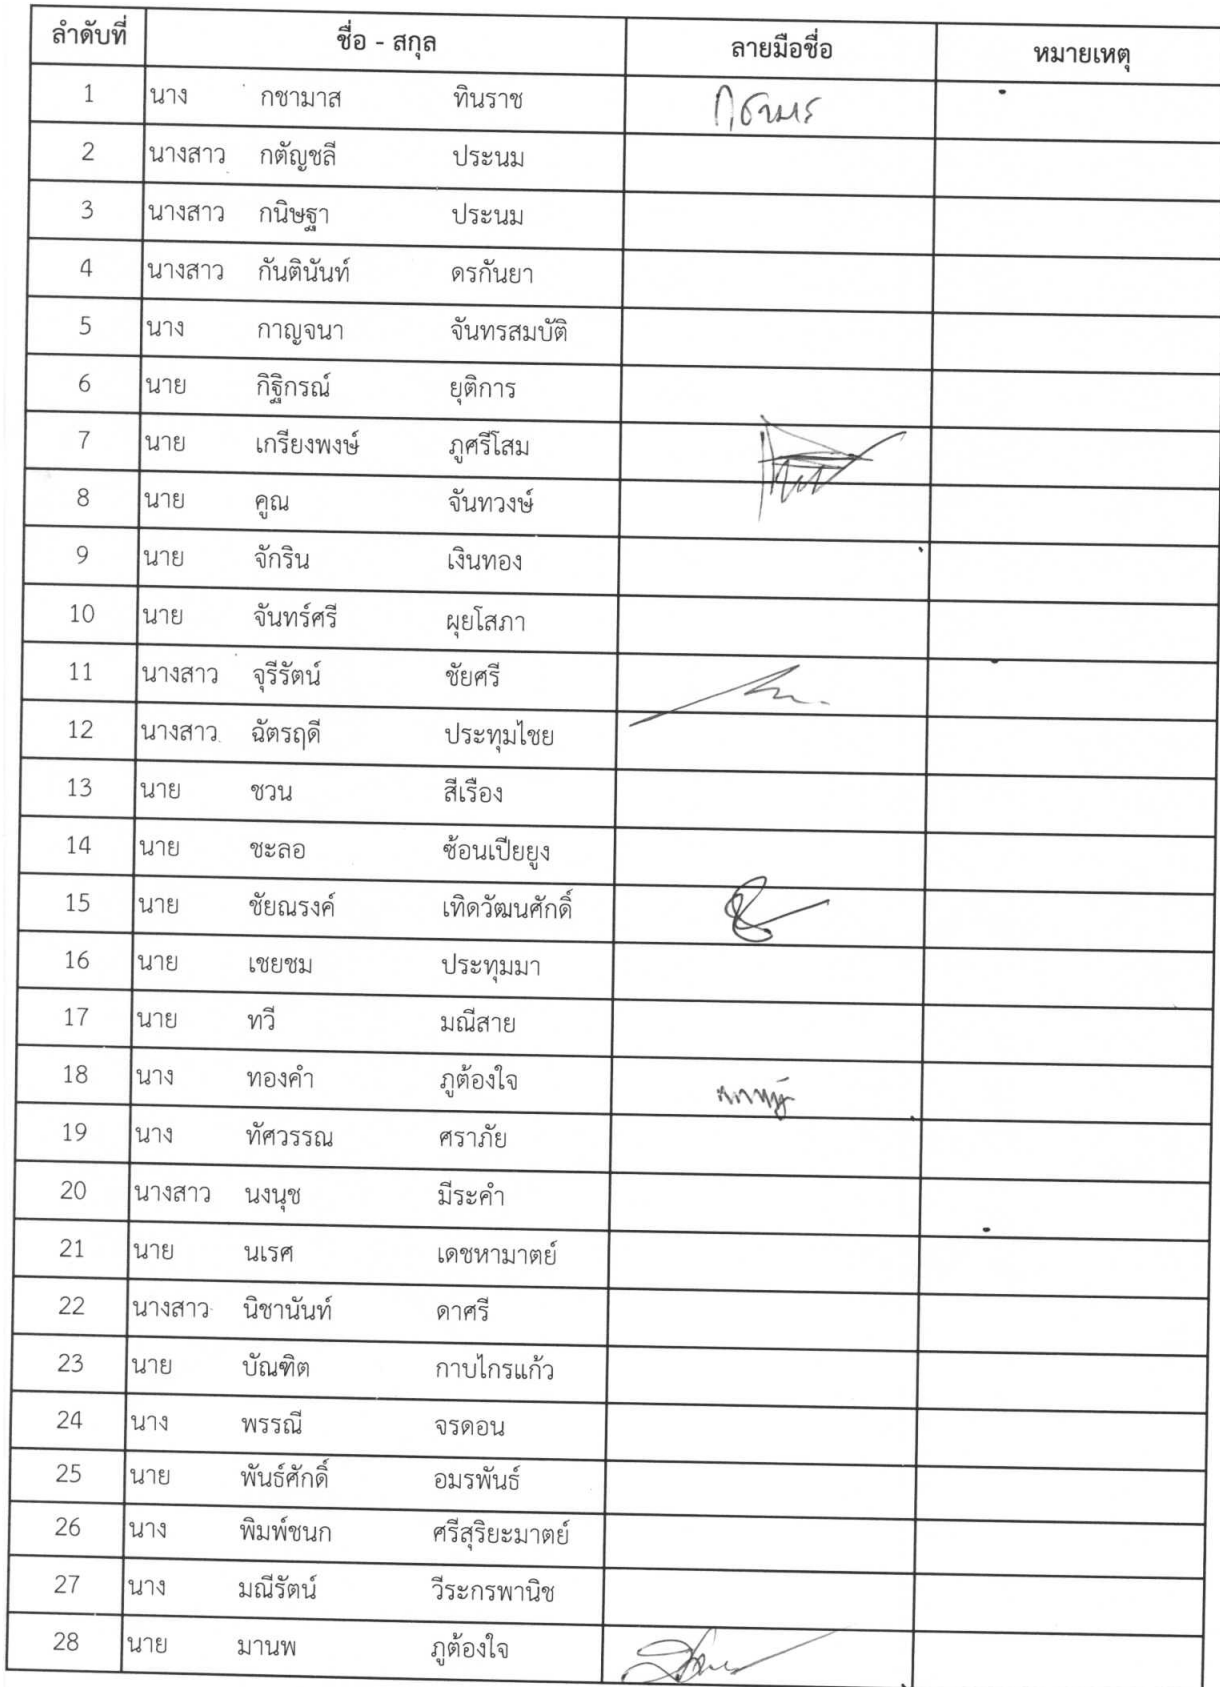 ลำดับที่ ชื่อ - สกุล ลายมือชื่อ หมายเหตุ
1 นาง กชามาส ทินราช
2 นางสาว กตัญชลี ประนม
3 นางสาว กนิษฐา ประนม
4 นางสาว กันตินันท์ ดรกันยา
5 นาง กาญจนา จันทรสมบัติ
6 นาย กิฐิกรณ์ ยุติการ
7 นาย เกรียงพงษ์ ภูศรีโสม
8 นาย คูณ จันทวงษ์
9 นาย จักริน เงินทอง
10 นาย จันทร์ศรี ผุยโสภา
11 นางสาว จุรีรัตน์ ชัยศรี
12 นางสาว ฉัตรฤดี ประทุมไชย
13 นาย ชวน สีเรือง
14 นาย ชะลอ ซ้อนเปียยูง
15 นาย ชัยณรงค์ เทิดวัฒนศักดิ์
16 นาย เชยชม ประทุมมา
17 นาย ทวี มณีสาย
18 นาง ทองคำ ภูต้องใจ
19 นาง ทัศวรรณ ศราภัย
20 นางสาว นงนุช มีระคำ
21 นาย นเรศ เดชหามาตย์
22 นางสาว นิชานันท์ ดาศรี
23 นาย บัณฑิต กาบไกรแก้ว
24 นาง พรรณี จรดอน
25 นาย พันธ์ศักดิ์ อมรพันธ์
26 นาง พิมพ์ชนก ศรีสุริยะมาตย์
27 นาง มณีรัตน์ วีระกรพานิช
28 นาย มานพ ภูต้องใจ